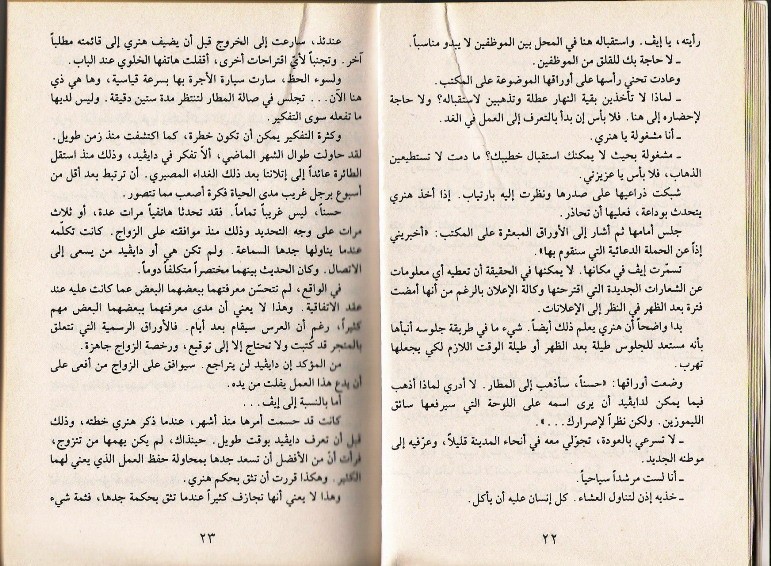 رأيته، يا إيڤ. واستقباله هنا في المحل بين الموظفين لا يبدو مناسباً.
ـ لا حاجة بك للقلق من الموظفين.
وعادت تحني رأسها على أوراقها الموضوعة على المكتب.
ـ لماذا لا تأخذين بقية النهار عطلة وتذهبين لاستقباله؟ ولا حاجة
لإحضاره إلى هنا. فلا بأس إن بدأ بالتعرف إلى العمل في الغد.
ـ أنا مشغولة يا هنري.
ـ مشغولة بحيث لا يمكنك استقبال خطيبك؟ ما دمت لا تستطيعين
الذهاب، فلا بأس يا عزيزتي.
شبكت ذراعيها على صدرها ونظرت إليه بارتياب. إذا أخذ هنري
يتحدث بوداعة، فعليها أن تحاذر.
جلس أمامها ثم أشار إلى الأوراق المبعثرة على المكتب: «أخبريني
إذاً عن الحملة الدعائية التي سنقوم بها».
تسمّرت إيڤ في مكانها. لا يمكنها في الحقيقة أن تعطيه أي معلومات
عن الشعارات الجديدة التي اقترحتها وكالة الإعلان بالرغم من أنها أمضت
فترة بعد الظهر في النظر إلى الإعلانات.
بدا واضحاً أن هنري يعلم ذلك أيضاً. شيء ما في طريقة جلوسه أنبأها
بأنه مستعد للجلوس طيلة بعد الظهر أو طيلة الوقت اللازم لكي يجعلها
تهرب.
وضعت أوراقها: «حسناً، سأذهب إلى المطار. لا أدري لماذا أذهب
فيما يمكن لدايڤيد أن يرى اسمه على اللوحة التي سيرفعها سائق
الليموزين. ولكن نظراً لإصرارك...».
ـ لا تسرعي بالعودة، تجوّلي معه في أنحاء المدينة قليلاً، وعرّفيه إلى
موطنه الجديد.
ـ أنا لست مرشداً سياحياً.
ـ خذيه إذن لتناول العشاء. كل إنسان عليه أن يأكل.
٢٢
عندئذ، سارعت إلى الخروج قبل أن يضيف هنري إلى قائمته مطلباً
آخر. وتجنباً لأي اقتراحات أخرى، أقفلت هاتفها الخلوي عند الباب.
ولسوء الحظ، سارت سيارة الأجرة بها بسرعة قياسية، وها هي ذي
هنا الآن... تجلس في صالة المطار لتنتظر مدة ستين دقيقة. وليس لديها
ما تفعله سوى التفكير.
وكثرة التفكير يمكن أن تكون خطرة، كما اكتشفت منذ زمن طويل.
لقد حاولت طوال الشهر الماضي، ألاّ تفكر في دايڤيد، وذلك منذ استقل
الطائرة عائداً إلى إتلانتا بعد ذلك الغداء المصيري. أن ترتبط بعد أقل من
أسبوع برجل غريب مدى الحياة فكرة أصعب مما تتصور.
حسناً، ليس غريباً تماماً. فقد تحدثا هاتفياً مرات عدة، أو ثلاث
مرات على وجه التحديد وذلك منذ موافقته على الزواج. كانت تكلّمه
عندما يناولها جدها السماعة. ولم تكن هي أو دايڤيد من يسعى إلى
الاتصال. وكان الحديث بينهما مختصراً متكلفاً دوماً.
في الواقع، لم تتحسّن معرفتهما ببعضهما البعض عما كانت عليه عند
عقد الاتفاقية. وهذا لا يعني أن مدى معرفتهما ببعضهما البعض مهم
كثيراً، رغم أن العرس سيقام بعد أيام. فالأوراق الرسمية التي تتعلق
بالمتجر قد كُتبت ولا تحتاج إلا إلى توقيع، ورخصة الزواج جاهزة.
من المؤكد إن دايڤيد لن يتراجع. سيوافق على الزواج من أفعى على
أن يدع هذا العمل يفلت من يده.
أما بالنسبة إلى إيڤ...
كانت قد حسمت أمرها منذ أشهر، عندما ذكر هنري خطته، وذلك
قبل أن تعرف دايڤيد بوقت طويل. حينذاك، لم يكن يهمها من تتزوج،
فرأت أنّ من الأفضل أن تسعد جدها بمحاولة حفظ العمل الذي يعني لهما
الكثير. وهكذا قررت أن تثق بحكم هنري.
وهذا لا يعني أنها تجازف كثيراً عندما تثق بحكمة جدها، فثمة شيء
٢٣